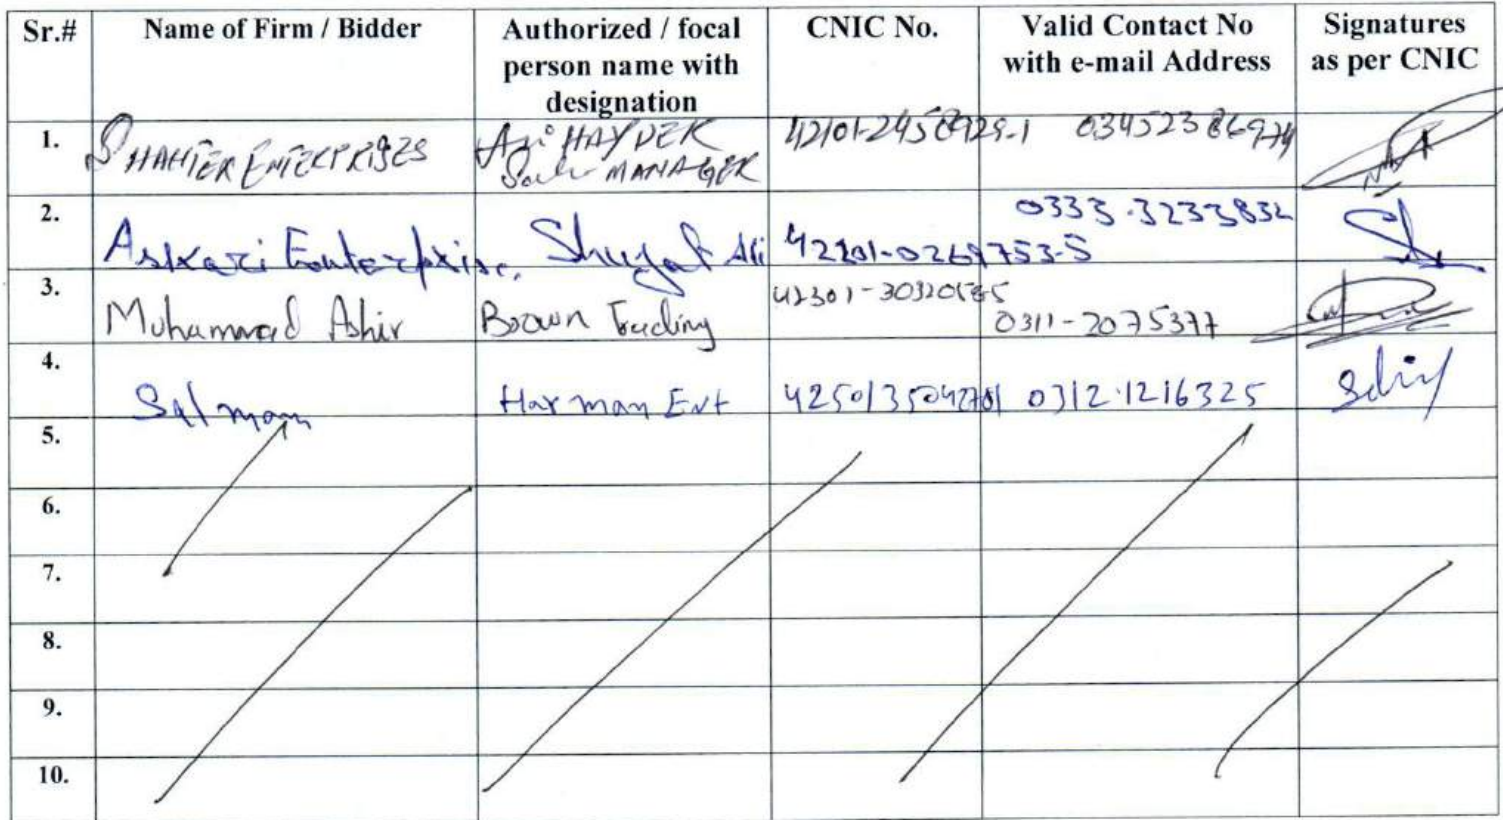 Sr.# Name of Firm / Bidder Authorized / focal person name with designation CNIC No. Valid Contact No with e-mail Address Signatures as per CNIC
1. ENTERPRISES HAYDER MANAGER
2. Askari Enterprise, Shujat Ali 42201-0269753-5 0333-3233832
3. Muhammad Ashir Brown Trading 0311-2075377
4. Salman Harman Ent 0312-1216325
5.
6.
7.
8.
9.
10.